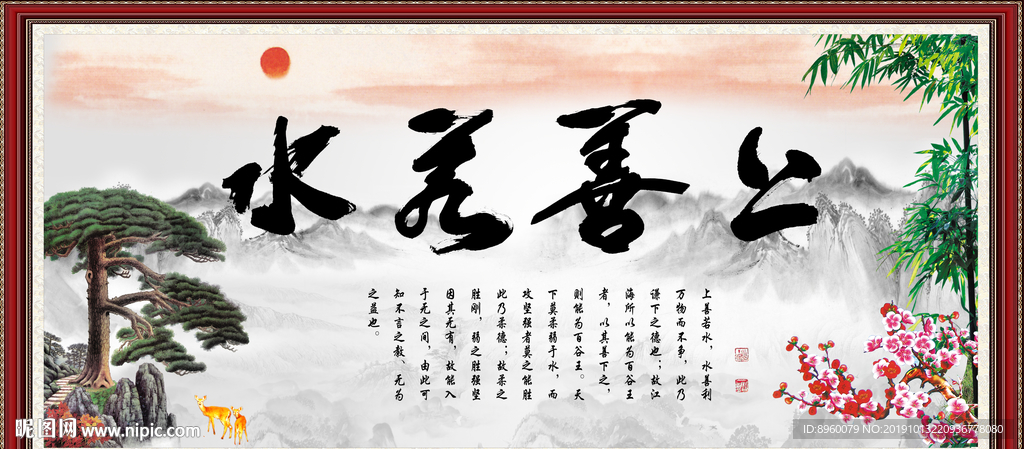 上善若水
上善若水，水善利
万物而不争，此乃
谦下之德也；故江
海所以能为百谷王
者，以其善下之，
则能为百谷王。天
下莫柔弱于水，而
攻坚强者莫之能胜
此乃柔德；故柔之
胜刚，弱之胜强坚
因其无有，故能入
于无之间，由此可
知不言之教、无为
之益也。
昵图网 www.nipic.com
ID:8960079 NO:20191013220936778080